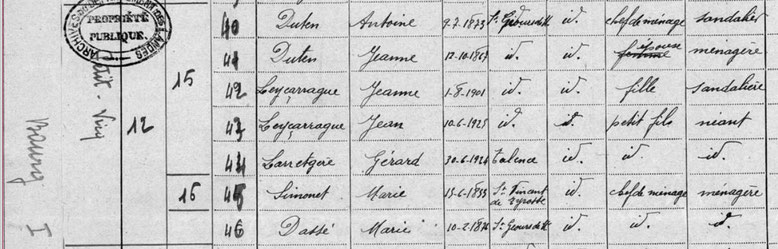 ARCHIVES DÉPARTEMENTALES LANDES
PROPRIÉTÉ PUBLIQUE
Petit-Viry
Maurs I
12
40 Duten Antoine 9-7-1873 St Geours de M. id. chef de ménage sandalier
15 41 Duten Jeanne 12-10-1867 id. id. femme épouse ménagère
42 Leyçarrague Jeanne 1-8-1901 id. id. fille sandalière
43 Leyçarrague Jean 10-6-1925 id. id. petit fils néant
44 Larretgère Gérard 30-6-1924 Talence id. id. id.
16 45 Simonet Marie 15-6-1855 St Vincent de Tyrosse id. chef de ménage ménagère
46 Dassé Marie 10-2-1876 St Geours de M. id. id. id.